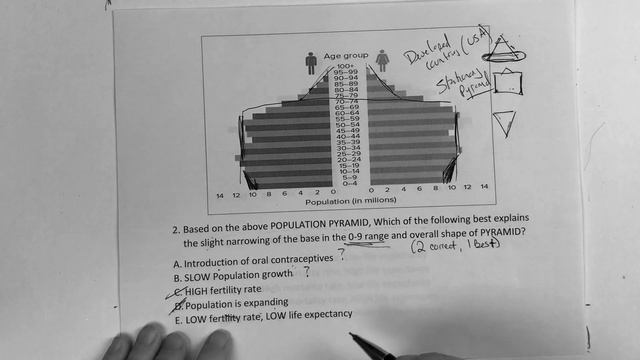 Age group
100+
95–99
90–94
85–89
80–84
75–79
70–74
65–69
60–64
55–59
50–54
45–49
40–44
35–39
30–34
25–29
20–24
15–19
10–14
5–9
0–4
14 12 10 8 6 4 2 0 0 2 4 6 8 10 12 14
Population (in milions)
Developed
country (USA)
Stationary
Pyramid
2. Based on the above POPULATION PYRAMID, Which of the following best explains
the slight narrowing of the base in the 0-9 range and overall shape of PYRAMID?
(2 correct, 1 Best)
A. Introduction of oral contraceptives ?
B. SLOW Population growth ?
C. HIGH fertility rate
D. Population is expanding
E. LOW fertility rate, LOW life expectancy